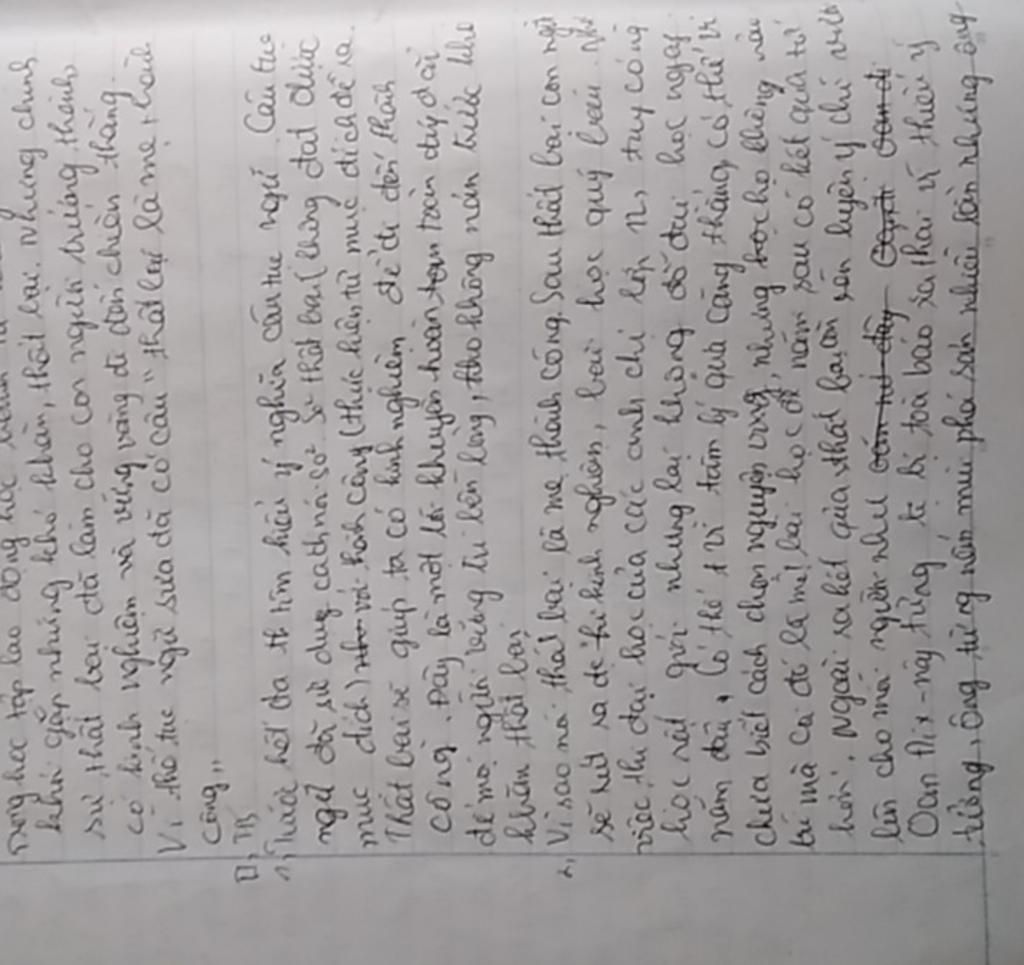 Trong học tập lao động học
khi gặp những khó khăn, thất bại nhưng chính
sự thất bại đã làm cho con người trưởng thành
có kinh nghiệm và vững vàng đi đến chiến thắng.
Vì thế tục ngữ xưa đã có câu "thất bại là mẹ thành
công"
II, TB
1, Trước hết ta th tìm hiểu ý nghĩa câu tục ngữ. Câu tục
ngữ đã sử dụng cách nói so sánh thất bại (không đạt được
mục đích) với thành công (thực hiện từ mục đích đề ra.
Thất bại sẽ giúp ta có kinh nghiệm để đi đến thành
công. Đây là một lời khuyên hoàn toàn đúng đắn
để mọi người vững tri bền lòng, kho không nản trước kho
khăn thất bại
2, Vì sao nói thất bại là mẹ thành công. Sau thất bại con người
sẽ rút ra đc kinh nghiệm, bài học quý báu. Như
việc thi đại học của các anh chị lớp 12, tuy có ng
học rất giỏi nhưng lại không đỗ đại học ngay
năm đầu, Có thể t vì tâm lý quá căng thẳng, có thể vì
chưa biết cách chọn nguyện vọng, nhưng họ không nản
trí mà coi đó là một bài học để năm sau có kết quả tốt
hơn. Ngoài ra kết quả thất bại còn rèn luyện ý chí vươn
lên cho mỗi người như
Oan Đix-nây từng bị bị toà báo sa thải vì thiếu ý
tưởng, Ông từng nếm mùi phá sản nhiều lần nhưng ông